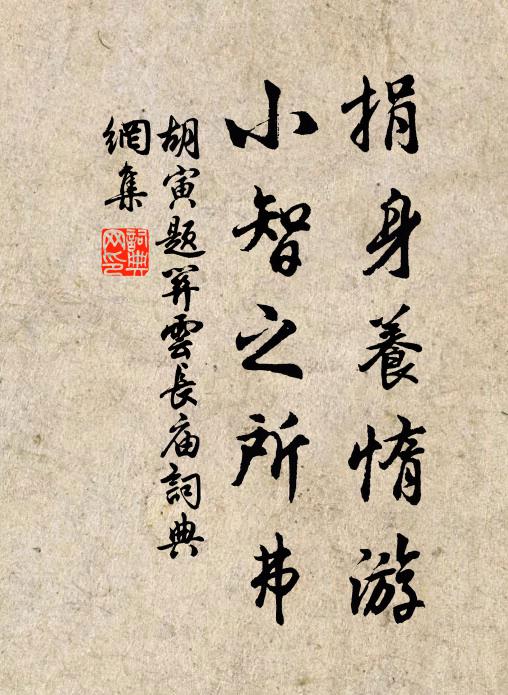 捐身養惰游
小智之所弗
胡寅題關雲長庙詞典
網集
詞典网印